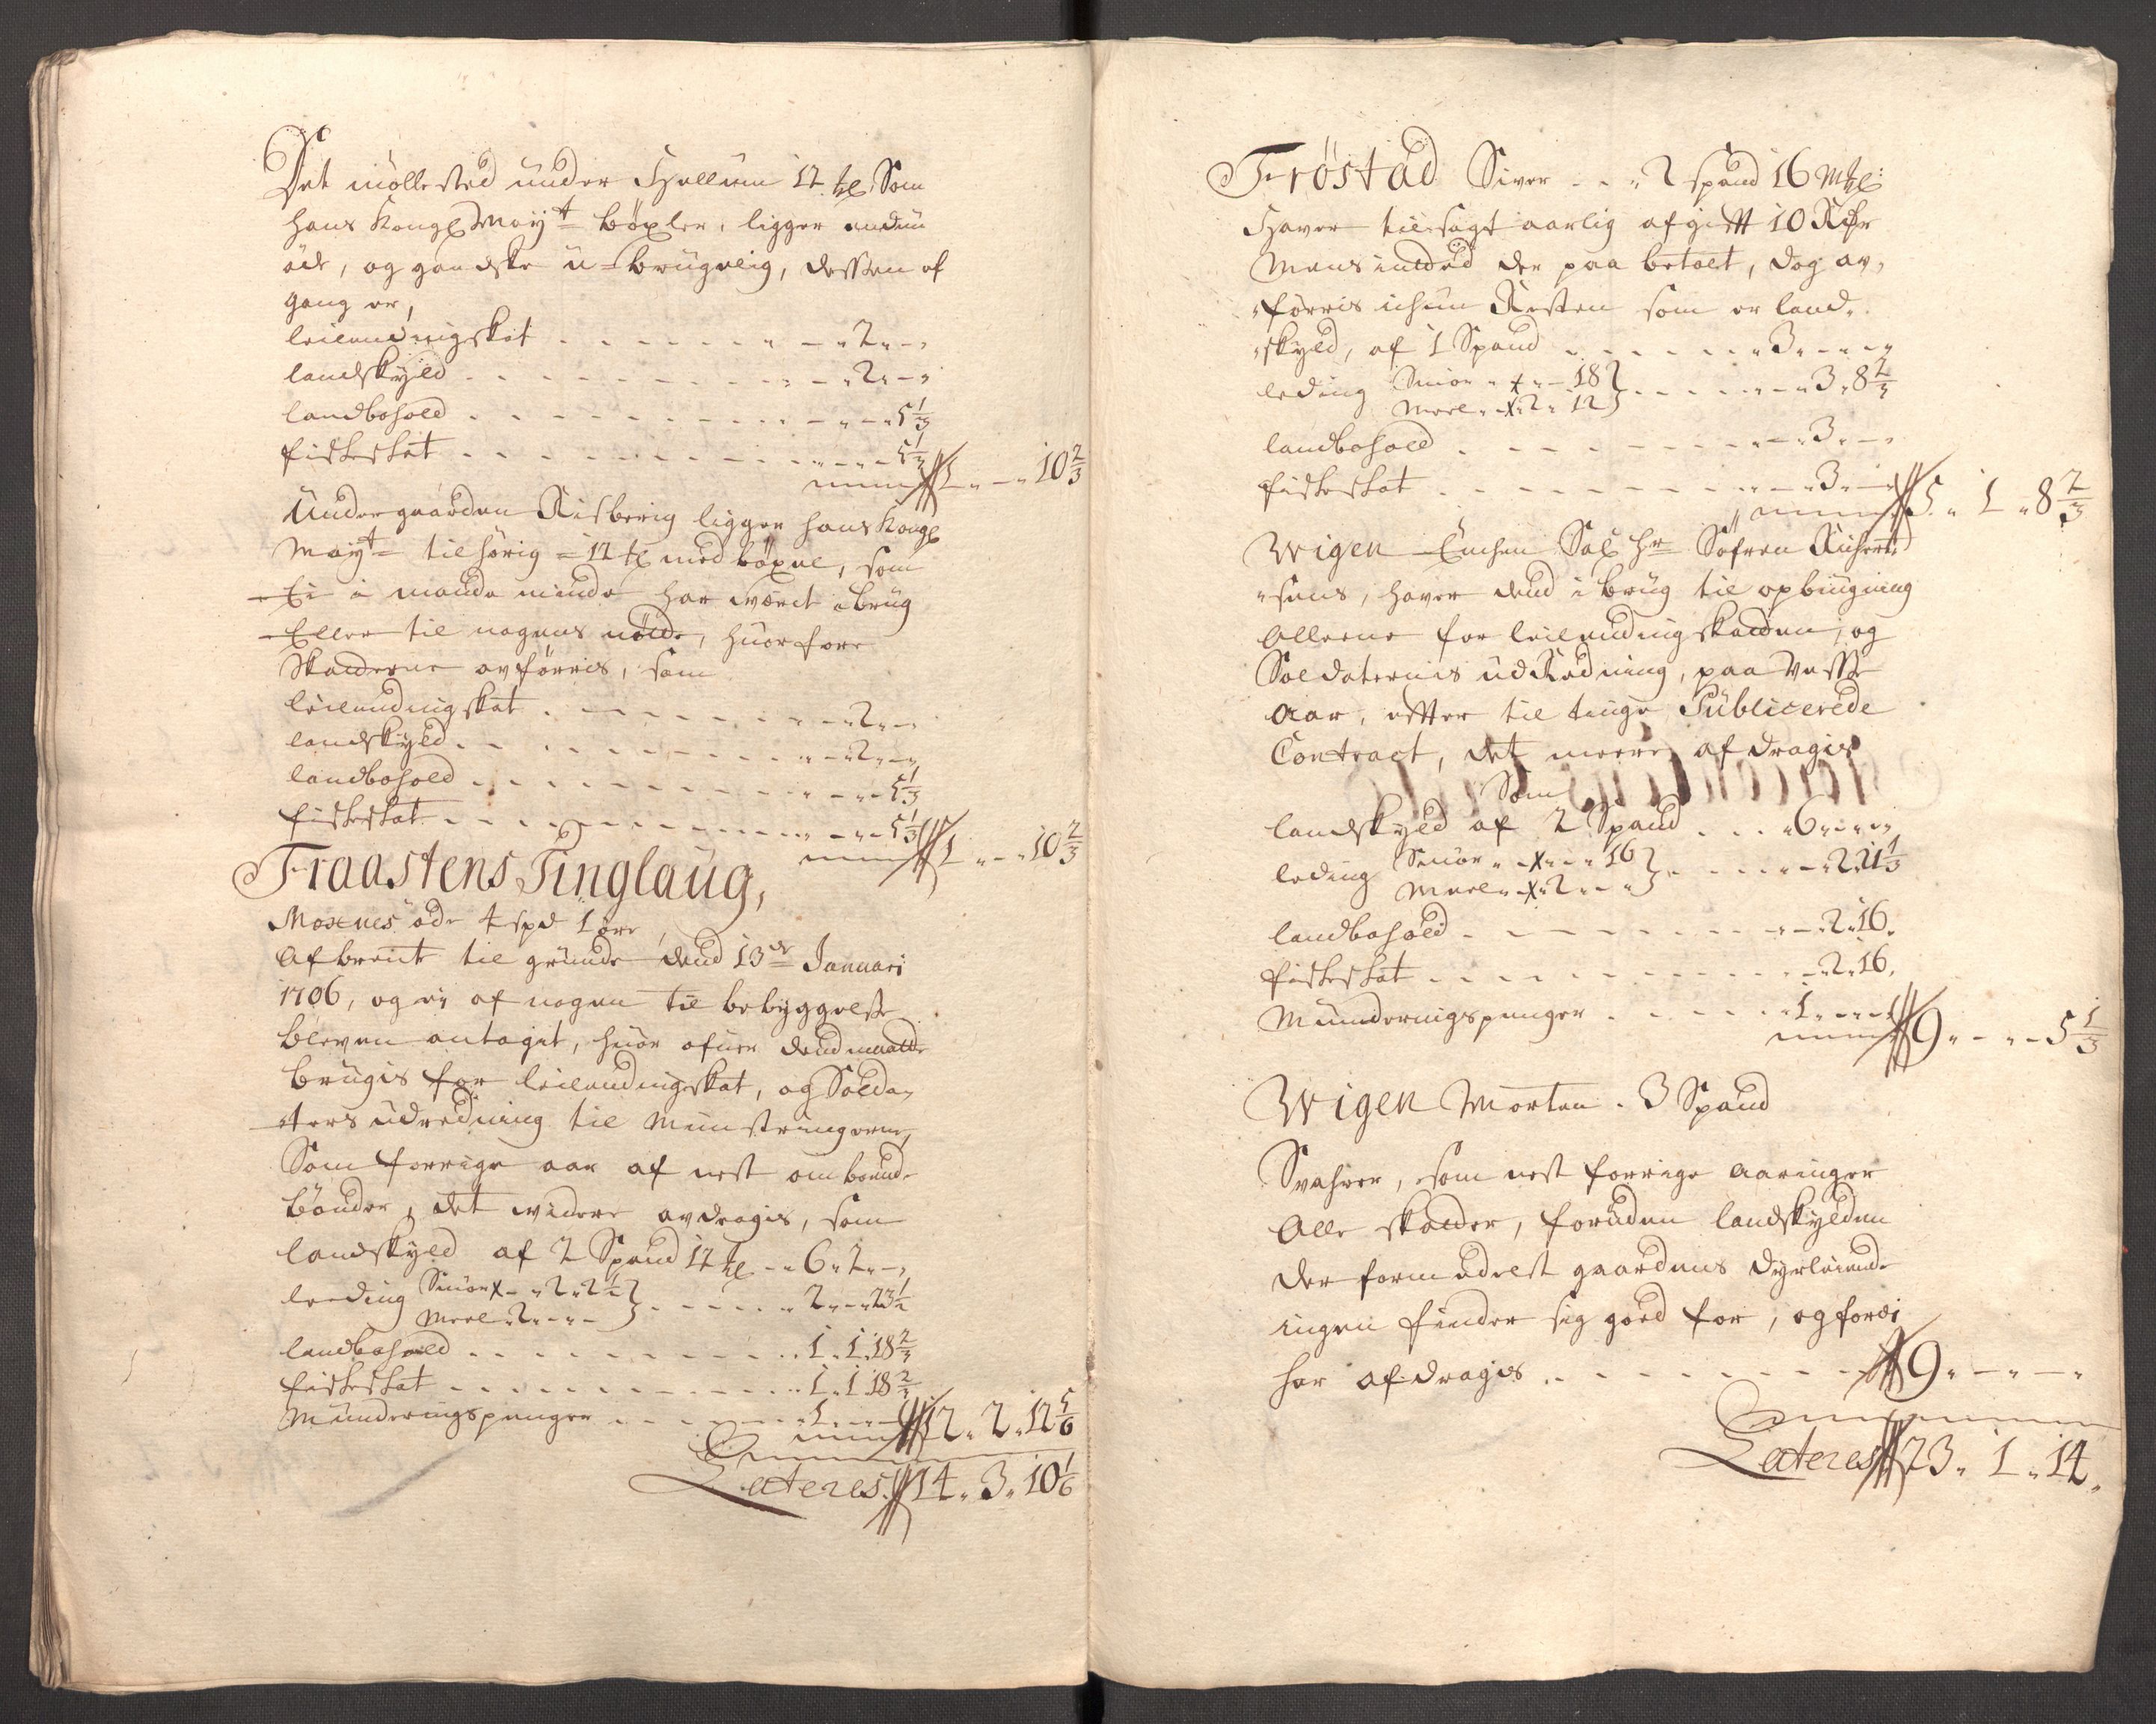 Det møllested under Hellum 12 ꝉ. Som
hans Kongl Mayt bøxler, ligger endnu
øde, og gandske u-brugelig, dessen af
gang er,
leilendingskat - - - 2 - -
landskyld - - - 2 - -
landbohold - - - 5 1/3
fiskeskat - - - 5 1/3
1 - - 10 2/3
Under gaarden Risberig ligger hans Kongl
Mayt tilhørig 12 ꝉ med bøxel, som
Ei i mands minde har wæret i brug
Eller til nogens nøtte, huorfore
Skatterne afførris, som
leilendingskat - - - 2 - -
landskyld - - - 2 - -
landbohold - - - 5 1/3
fiskeskat - - - 5 1/3
1 - - 10 2/3
Fraastens Tinglaug,
Moxnes øde 4 spd 1 øre,
Afbrent til grunde dend 13de Januari
1706, og ej af nogen til bebyggelse
bleven antaget, huor ofuer dend maatte
brugis for leilendingskat, og Solda-
ters udredning til Munstringerne,
Som forrige aar af nest omboende
bønder, det widere afdragis, som
landskyld af 2 Spand 12 ꝉ - 6 - 2 -
leding Smør x - 2 - 2 1/2
Meel 2 - - - - 2 - - 23 1/2
landbohold - - - 1 - 1 - 18 2/3
fiskeskat - - - 1 - 1 - 18 2/3
Munderingspenger - - - 1 - -
12 - 2 - 12 5/6
Lateres 14 - 3 - 10 1/6
Frøstad Siver - - 2 spand 16 Mkl:
Haver tilsagt aarlig afgift 10 Rdr
der paa betalt, dog af-
førris Resten som er land-
skyld, af 1 Spand - - - 3 - - -
leding Smør - x - - 18
Meel - x - 2 - 12 - - - 3 - 8 2/3
landbohold - - - 3 - -
fiskeskat - - - 3 - -
5 - 1 - 8 2/3
Wigen Enchen Sal. Hr Søfren
sens, haver dend i brug til opbygning
Alleene for leilendingskatten, og
Soldaternis udRedning, paa Visse
Aar, efter til tinge Publicerede
Contract, det meere afdragis
Som
landskyld af 2 Spand - - - 6 - - -
leding Smør - x - - 16
Meel - x - 2 - - - - - 2 - 21 1/3
landbohold - - - 2 - 16
fiskeskat - - - 2 - 16
Munderingspenger - - - 1 - - -
9 - - - 5 1/3
Wigen Morten - 3 Spand
Svahrer, som nest forrige Aaringer
Alle skatter, foruden landskylden
der formedelst gaardens dyrleiende
ingen finder sig goed for, og fordi
her afdragis - - - 9 - - - -
Lateres 23 - 1 - 14